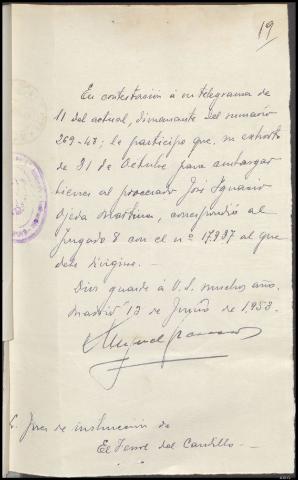 19
En contestación á su telegrama de
11 del actual, dimanante del sumario
269-47; le participo que su exhorto
de 31 de Octubre para embargar
bienes al procesado José Ignacio
Ojeda Martina, correspondió al
Juzgado 8 con el nº 17.937 al que
debe dirigirse.—
Dios guarde á V.S. muchos años.
Madrid 13 de Junio de 1953.
Miguel
S. Juez de instrucción de
El Ferrol del Caudillo.—